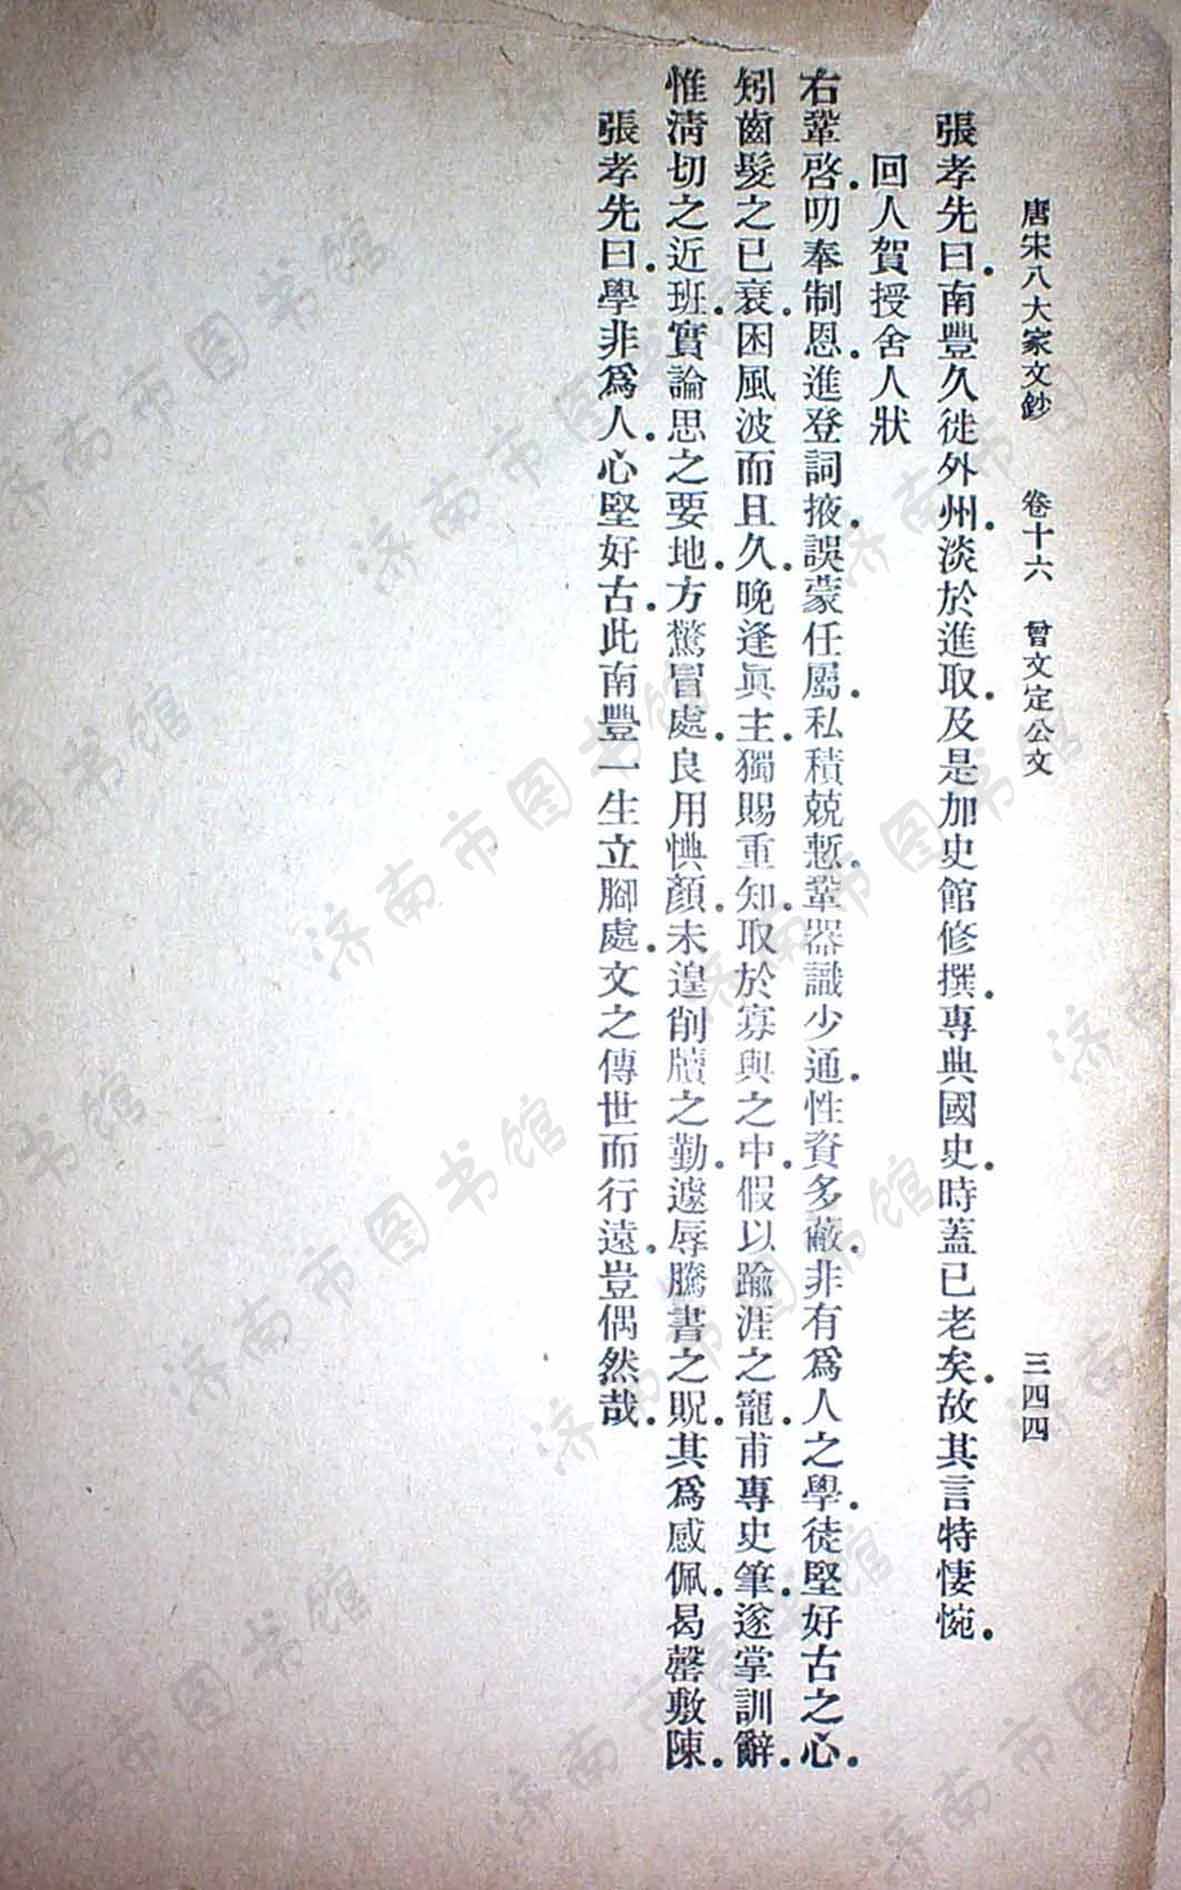 唐宋八大家文鈔　卷十六　曾文定公文　三四四
張孝先曰.南豐久徙外州.淡於進取.及是加史館修撰.專典國史.時蓋已老矣.故其言特悽惋.
回人賀授舍人狀
右鞏啓.叨奉制恩.進登詞掖.誤蒙任屬.私積兢慙.鞏器識少通.性資多蔽.非有爲人之學.徒堅好古之心.
矧齒髮之已衰.困風波而且久.晚逢眞主.獨賜重知.取於寡與之中.假以踰涯之寵.甫專史筆.遂掌訓辭.
惟淸切之近班.實論思之要地.方驚冒處.良用惕顏.未遑削牘之勤.遽辱騰書之貺.其爲感佩.曷罄敷陳.
張孝先曰.學非爲人.心堅好古.此南豐一生立腳處.文之傳世而行遠.豈偶然哉.
济南市图书馆